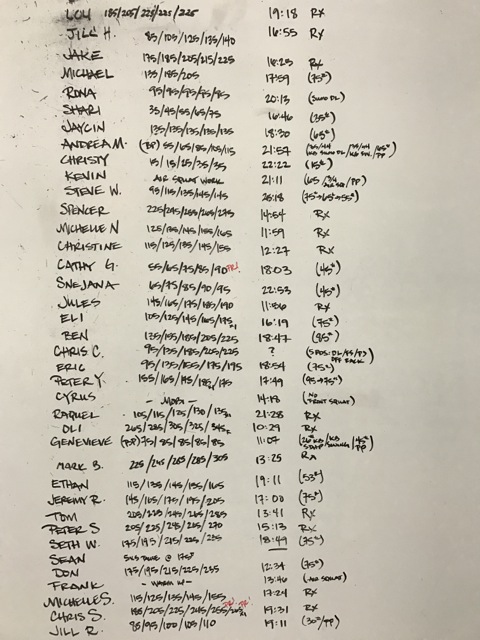 LOU 185/205/225/225/225 19:18 RX
JILL H. 85/105/125/135/140 16:55 RX
JAKE 175/185/205/215/225 18:25 RX
MICHAEL 135/185/205 17:59 (75#)
RONA 95/95/95/95/95 20:13 (SUMO DL)
SHARI 35/45/55/65/75 16:46 (35#)
JAYCIN 135/135/135/135/135 18:30 (65#)
ANDREA M. (BP) 55/65/85/105/115 21:54
CHRISTY 15/15/25/35/35 22:22 (15#)
KEVIN AIR SQUAT WORK 21:11
STEVE W. 95/115/135/145/145 20:18 (75#→65#→55#)
SPENCER 225/245/265/265/275 14:54 RX
MICHELLE N 125/135/145/155/165 11:59 RX
CHRISTINE 115/125/135/145/155 12:27 RX
CATHY G. 55/65/75/85/90 PR! 18:03 (45#)
SNEJANA 65/75/85/90/95 22:53 (45#)
JULES 145/165/175/185/190 11:56 RX
ELI 105/125/145/165/175 16:19 (75#)
BEN 135/155/185/205/225 18:47 (85#)
CHRIS C. 95/135/185/205/225 ?
ERIC 95/135/155/175/195 18:54 (75#)
PETER Y. 155/165/175/185/175 17:49 (95→75#)
CYRUS - MOBI - 14:13 (NO FRONT SQUAT)
RAQUEL 105/115/125/130/135 21:28 RX
OLI 265/285/305/325/345 10:29 RX
GENEVIEVE (BP) 75/85/85/85/85 11:07
MARK B. 225/245/265/285/305 13:25 RX
ETHAN 115/135/145/155/165 19:11 (53#)
JEREMY R. 145/165/175/195/205 17:00 (75#)
TOM 205/225/245/265/285 13:41 RX
PETER S 205/225/245/265/270 15:13 RX
SETH W. 175/195/215/225/235 18:49 (75#)
SEAN @ 175#
DON 175/195/215/225/235 12:34 (75#)
FRANK - WARM W - 13:46 (AIR SQUAT)
MICHELLE S. 115/125/135/145/155 17:24 RX
CHRIS S. 185/205/225/245/255 19:31 RX
JILL R. 85/95/100/105/110 19:11 (30#/PP)